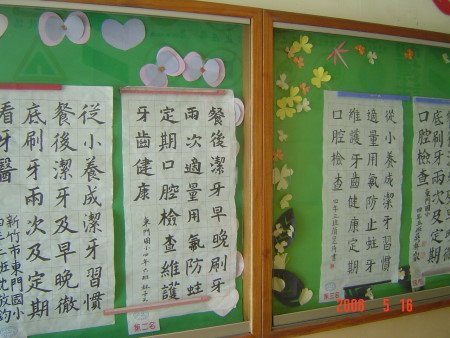 從小養成潔牙習慣
餐後潔牙及早晚徹
底刷牙兩次及定期
看牙醫
新竹市東門國小
餐後潔牙早晚刷牙
兩次適量用氟防蛀
定期口腔檢查維護
牙齒健康
東門國小四年六班
第二名
從小養成潔牙習慣
適量用氟防止蛀牙
維護牙齒健康定期
口腔檢查
第三名
底刷牙兩次及定
2008 5 16